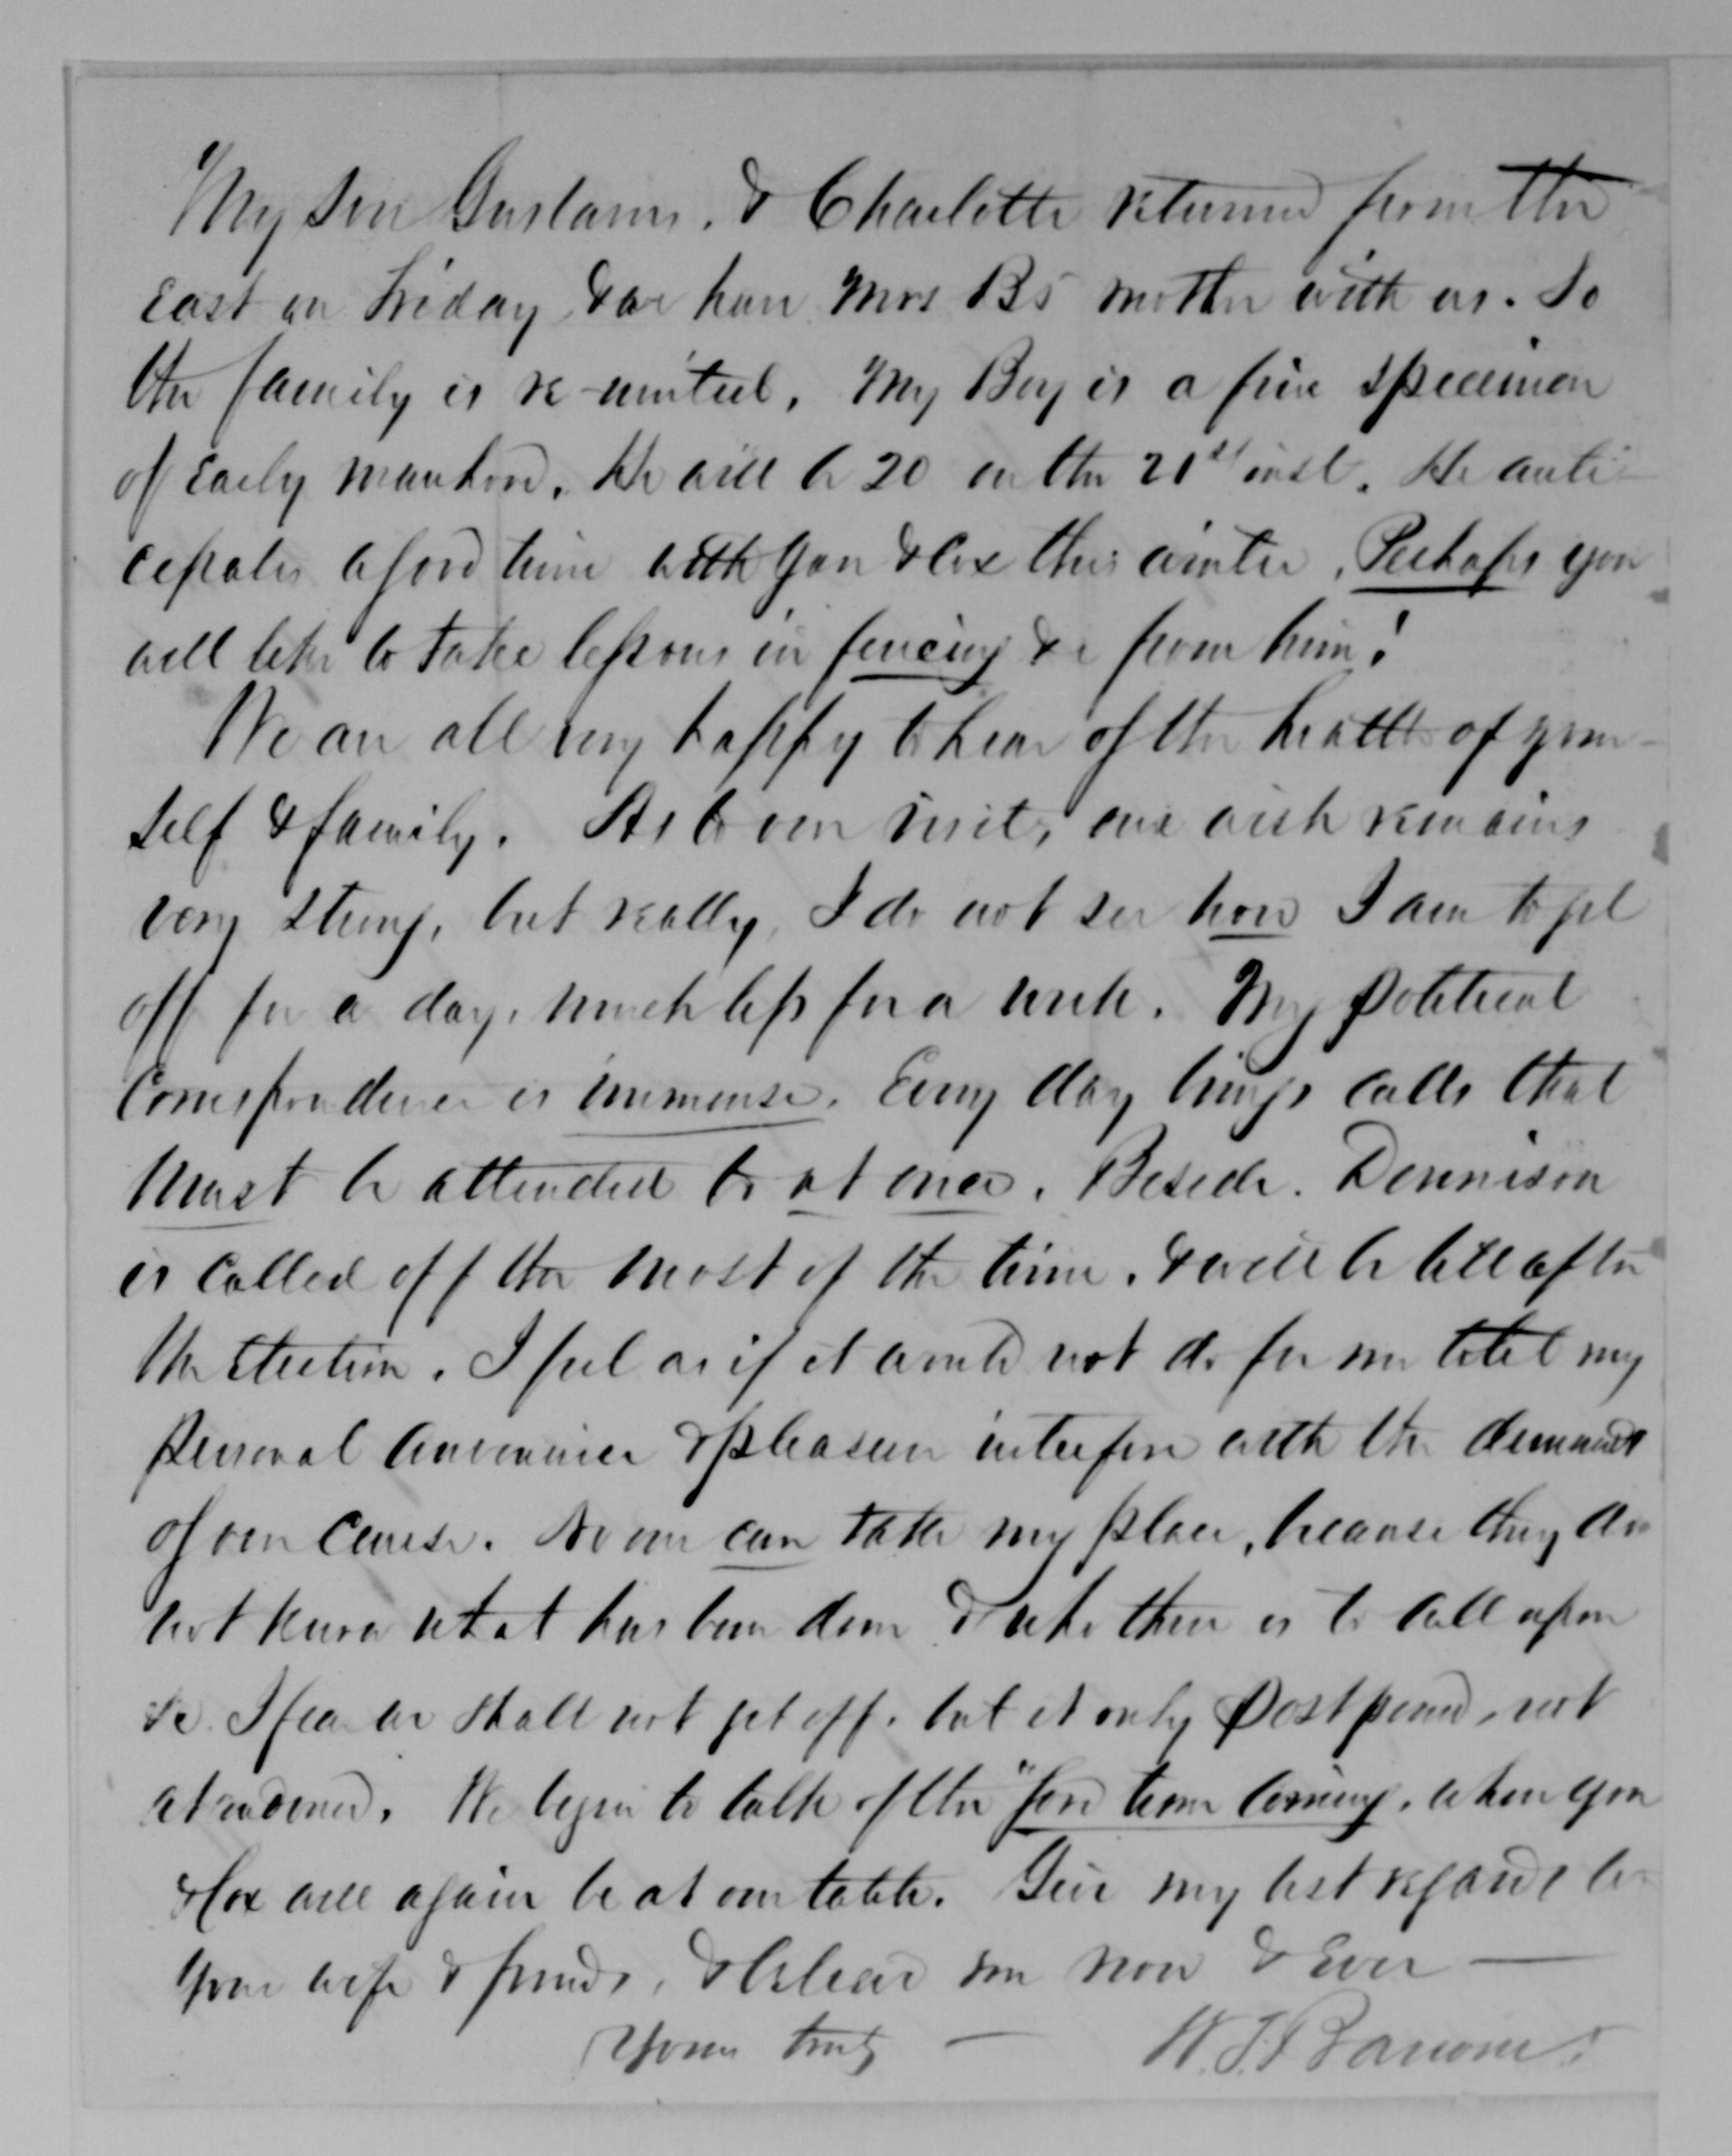 My Son Gustavus, & Charlotte returned from the
East on Friday & we have Mrs Bs mother with us. So
the family is re-united. My Boy is a fine specimen
of early manhood. He will be 20 on the 21st inst. He anti-
cipates a good time with you & Cox this winter. Perhaps you
will like to take lessons in fencing &c from him!
We are all very happy to hear of the health of your-
self & family. As to our visit, our wish remains
very strong, but really, I do not see how I am to get
off for a day, much less for a week. My political
Correspondence is immense. Every day brings calls that
must be attended to at once. Beside. Dennison
is called off the most of the time, & will be till after
the Election. I feel as if it would not do for me to let my
personal convenience & pleasure interfere with the demands
of our cause. No one can take my place, because they do
not know what has been done & who there is to call upon
&c. I fear we shall not get off, but it only postponed, not
abandoned. We begin to talk of the "good time coming, when you
& Cox will again be at our table. Give my best regards to
your wife & friends, & believe me now & Ever —
Yours truly — W. T. Bascom.